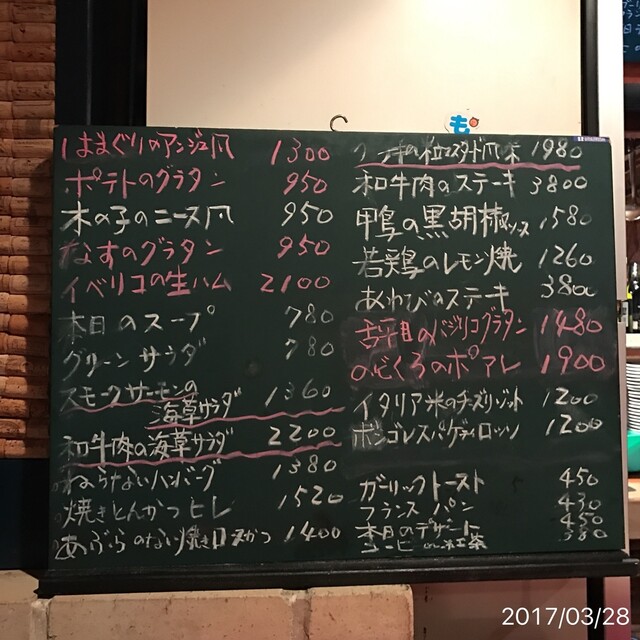 はまぐりのアンジュ風 1300
ポテトのグラタン 950
木の子のニース風 950
なすのグラタン 950
イベリコの生ハム 2100
本日のスープ 780
グリーンサラダ 780
スモークサーモンの
海草サラダ 1360
和牛肉の海草サラダ 2200
ねらないハンバーグ 1380
焼きとんかつヒレ 1520
あぶらのない焼きロースかつ 1400
も
粒マスタード風 1980
和牛肉のステーキ 3800
甲鳥の黒胡椒ソース 1580
若鶏のレモン焼 1260
あわびのステーキ 3800
舌平目のバジリコグラタン 1480
のどくろのポアレ 1900
イタリア米のチーズリゾット 1200
ボンゴレスパゲティロッソ 1200
ガーリックトースト 450
フランスパン 430
本日のデザート 450
コーヒー or 紅茶 380
2017/03/28